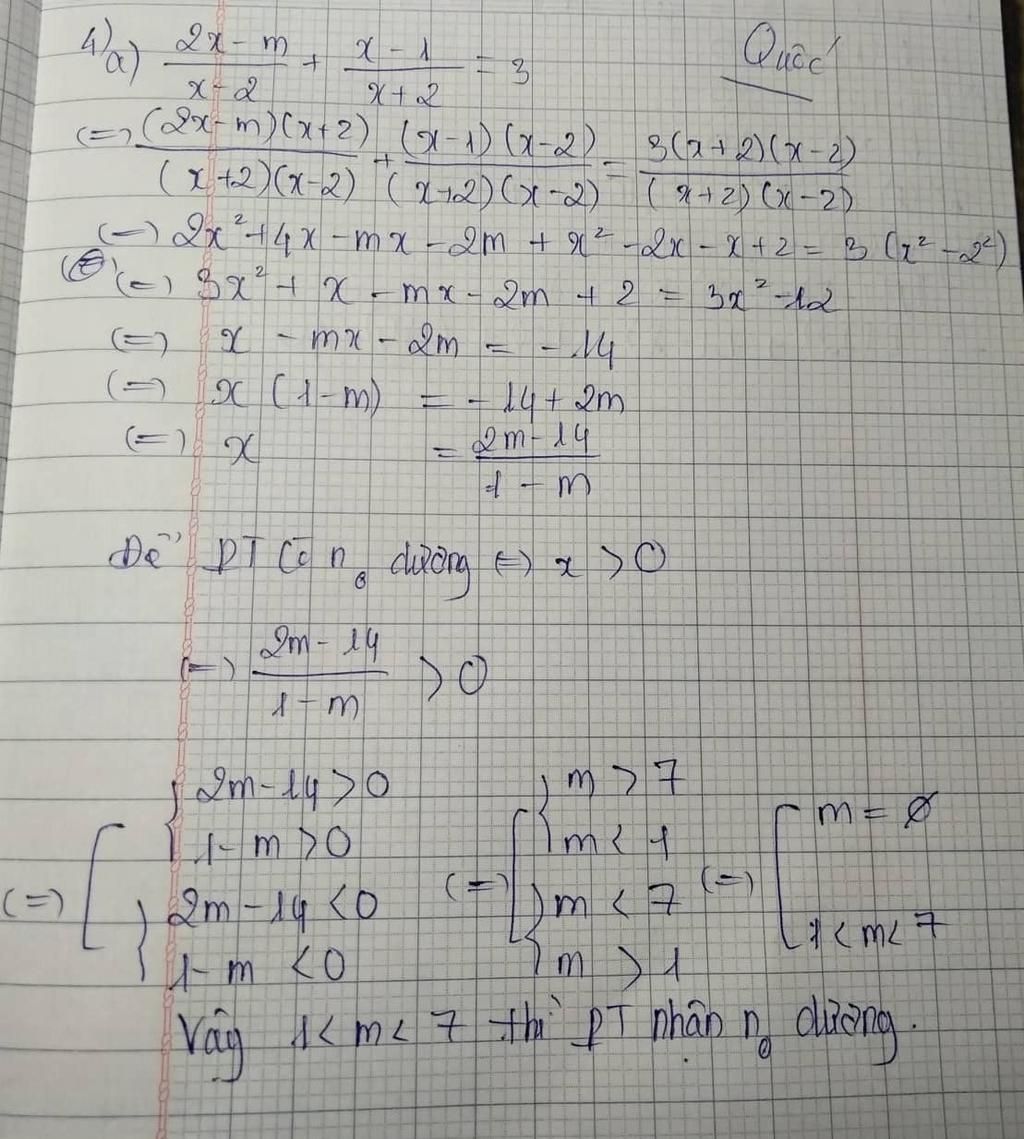 4) a) (2x - m)/(x - 2) + (x - 1)/(x + 2) = 3
Quốc
(=) (2x - m)(x + 2)/(x + 2)(x - 2) + (x - 1)(x - 2)/(x + 2)(x - 2) = 3(x + 2)(x - 2)/(x + 2)(x - 2)
(=) 2x² + 4x - mx - 2m + x² - 2x - x + 2 = 3(x² - 2²)
(=) 3x² + x - mx - 2m + 2 = 3x² - 12
(=) x - mx - 2m = -14
(=) x (1 - m) = -14 + 2m
(=) x = (2m - 14)/(1 - m)
Để PT có n₀ dương (=) x > 0
(=) (2m - 14)/(1 - m) > 0
(=) [ { 2m - 14 > 0 (=) [ { m > 7 (=) [ m = ∅
1 - m > 0 m < 1
{ 2m - 14 < 0 { m < 7
1 - m < 0 m > 1 1 < m < 7
Vậy 1 < m < 7 thì PT nhân n₀ dương.